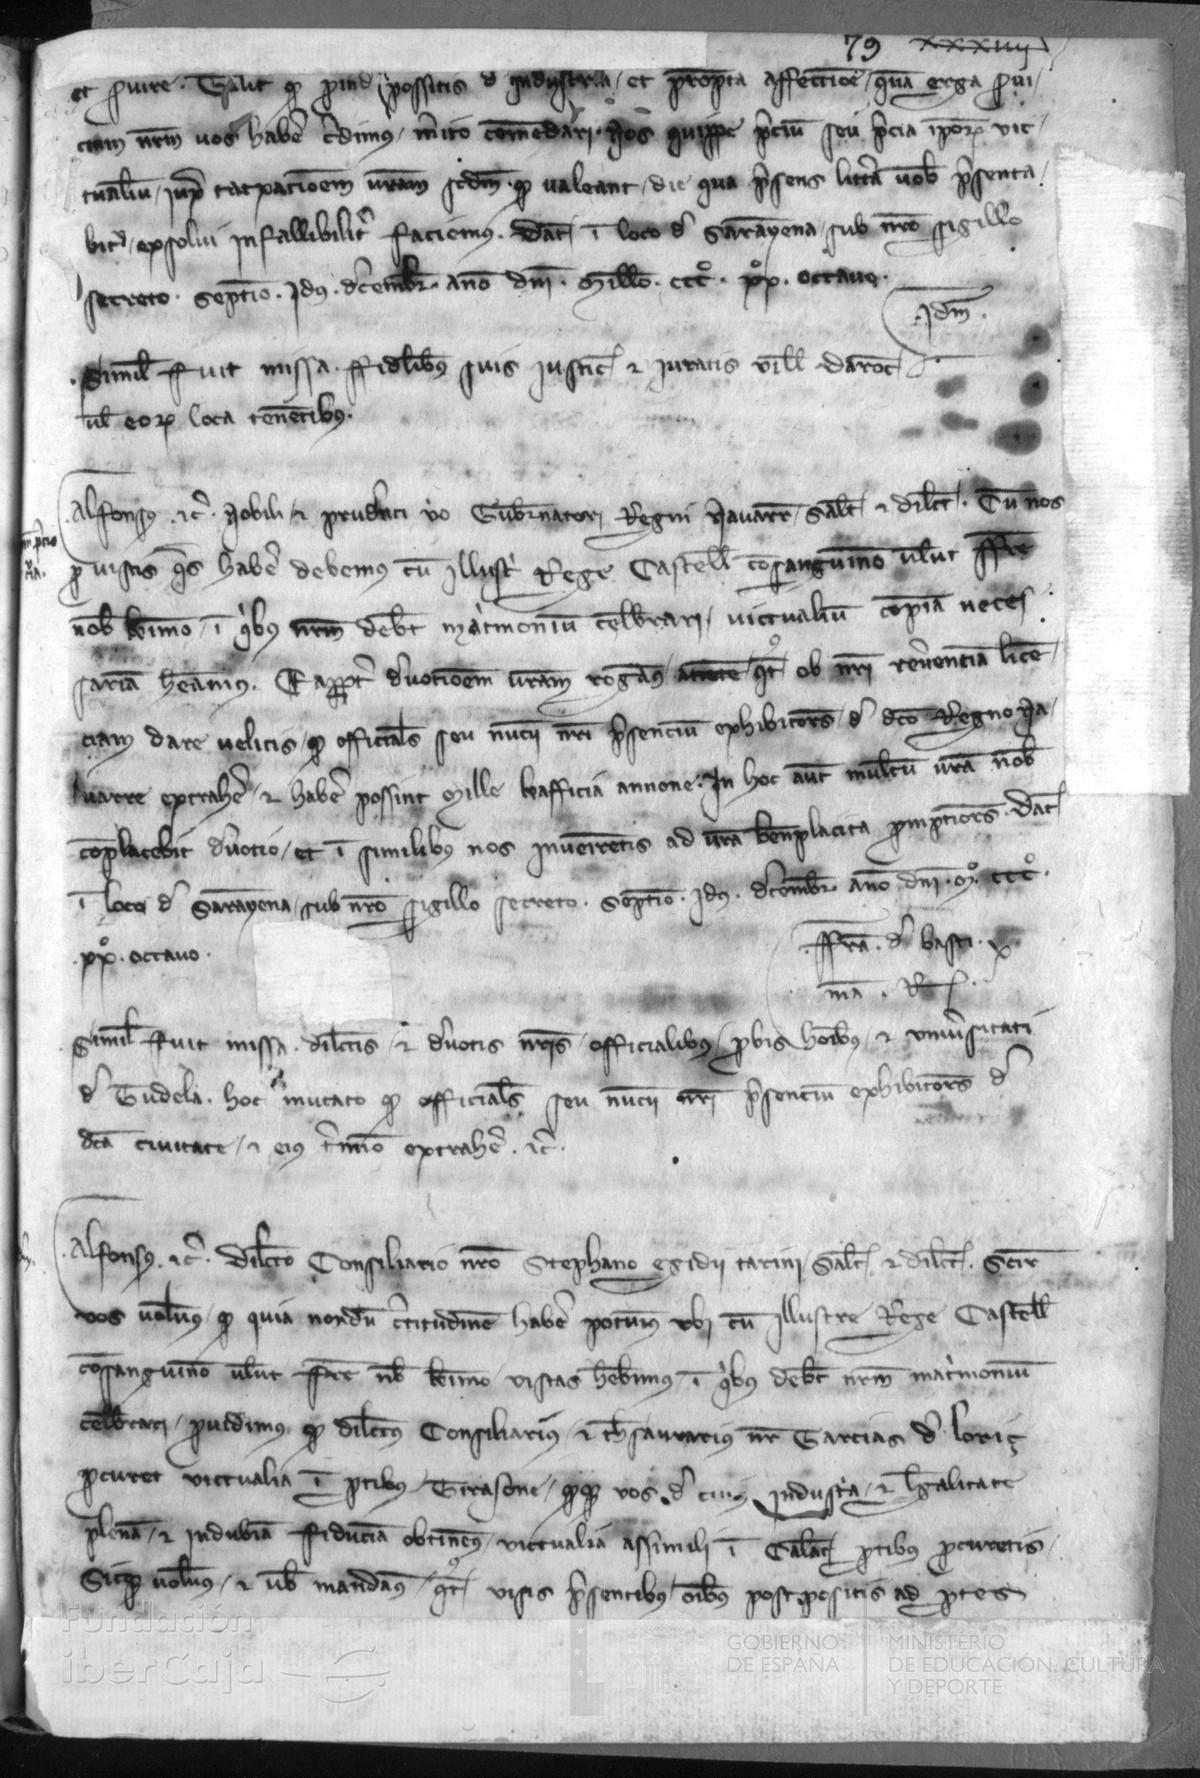 79 xxxiiij
et servire. Taliter qd proinde possitis de industria et prompta affectione quam erga servi
cium nrm vos habere credimus merito comendari. Nos quippe precium seu precia ipsorum vic
tualium iuxta taxationem vram scdm qd valeant die qua presens littera vob presenta
bitur exsolvi infallibiliter faciemus. Dat in loco de Saranyena sub nro sigillo
secreto. Septimo. Idus. decembr. anno dni. Millo. ccc. xx. octavo.
Idem.
Simil fuit missa. ffidelibus suis Justic et Juratis ville Daroce
vel eorum loca tenentibus.
Alfonsus. etc. Nobili et prudenti viro Gubernatori Regni Navarre salt et dilect. Cum nos
pro vistis quas habere debemus cum Illustri Rege Castelle consanguineo velut ffre
nob karissimo in quibus nrm debet matrimonium celebrari victualium copia neces
saria habeamus. Eapropter devotionem vram rogamus attente qtr ob nri reverenciam licen
ciam dare velitis qd officiales seu nuncii nri presencium exhibitores de dco Regno Na
varre extrahere et habere possint Mille kafficia annone. In hoc aut multum vra nob
complacebit devotio et in similibus nos invenietis ad vra beneplacita promptiores. Dat
in loco de Saranyena sub nro sigillo secreto. Septimo. Idus. decembr. anno dni. M. ccc.
xx. octavo.
ffra. de basti. ex
ma. R
Simil fuit missa. dilectis et devotis nris officialibus probis hominibus et universitati
de Tudela. hoc mutato qd officiales seu nuncii nri presencium exhibitores de
dca civitate et eius termino extrahere. etc.
Alfonsus. etc. Dilecto Consiliario nro Stephano egidii tarini salt et dilect. Scire
vos volumus qd quia nondum certitudinem habere potuimus ubi cum Illustre Rege Castelle
consanguineo velut ffre nob karimo vistas habebimus in quibus debet nrm matrimonium
celebrari providimus qd dilectus Consiliarius et thesaurarius nr Garcias de loriz
procuret victualia in partibus Tirasone qdqd vos de cuius industria et legalitate
plenam et indubiam fiduciam obtinemus victualia assimili in Calat partibus procuretis
Sicque volumus et vob mandamus qtr visis presentibus omnibus postpositis ad partes
Fundación
iberCaja
GOBIERNO
DE ESPAÑA
MINISTERIO
DE EDUCACIÓN, CULTURA
Y DEPORTE